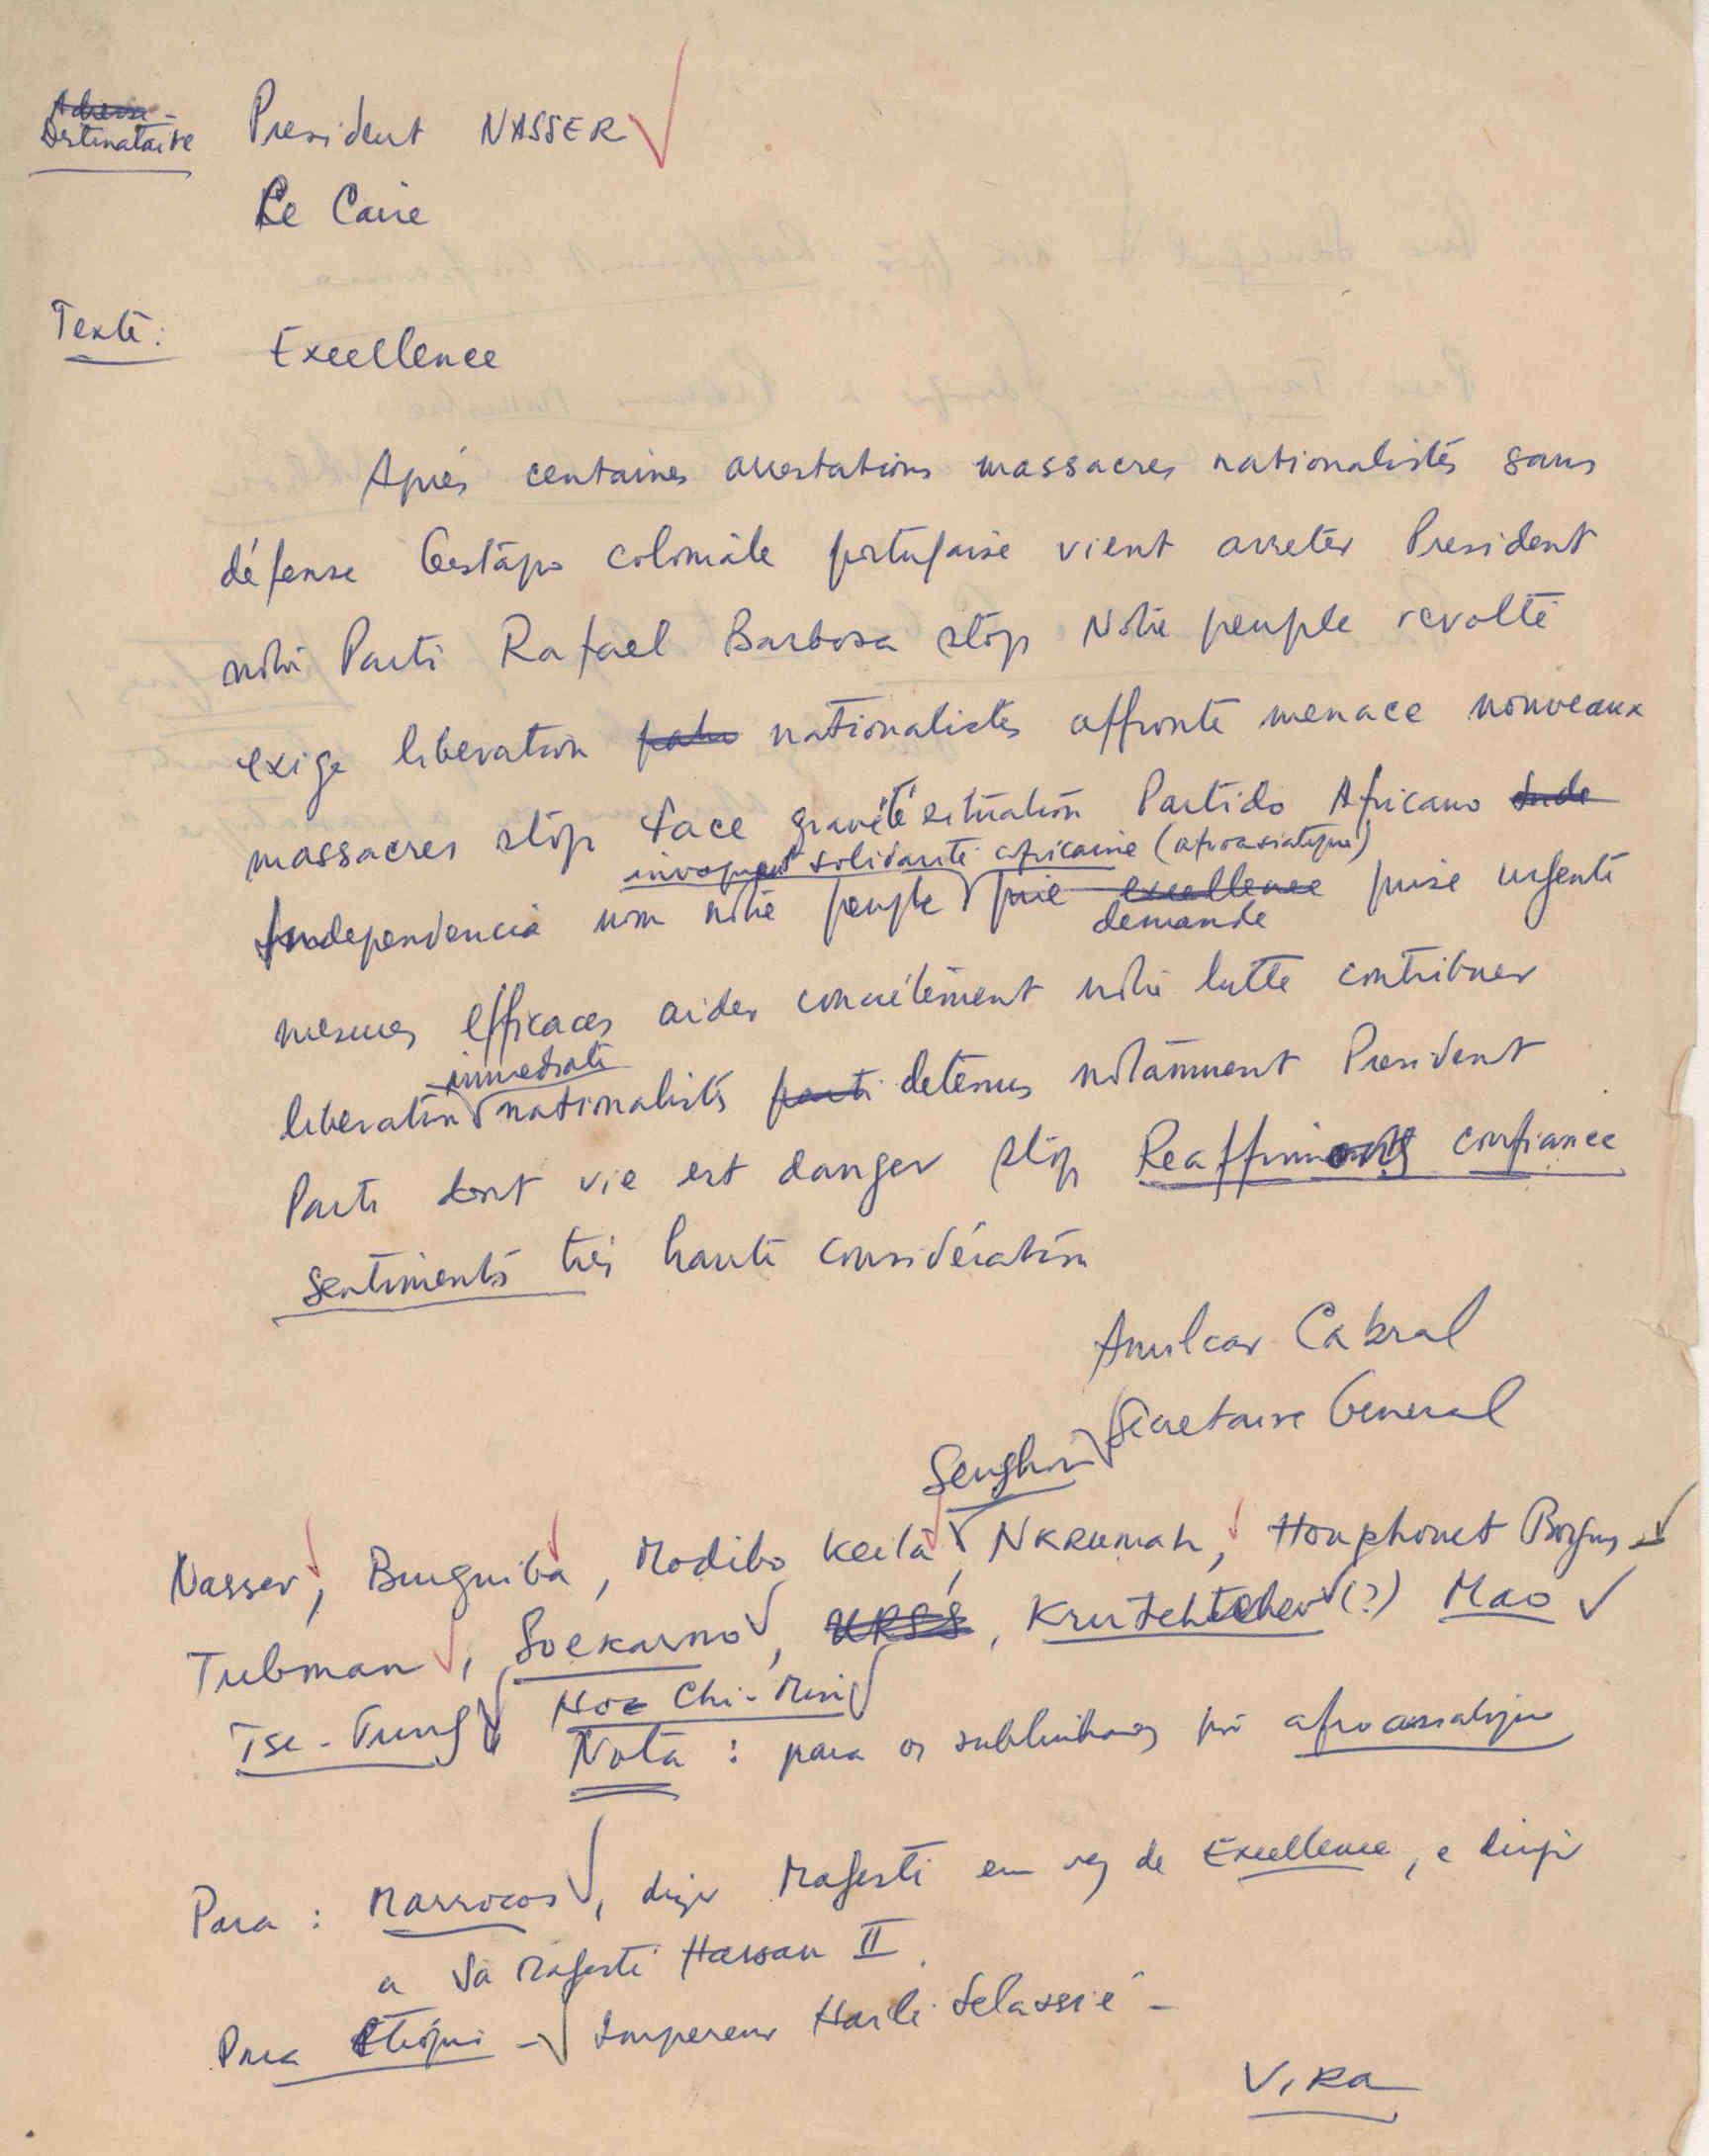 Adresse -
Destinataire President NASSER
Le Caire
Texte : Excellence
Après centaines arrestations massacres nationalistes sans
défense Gestapo coloniale portugaise vient arreter President
notre Parti Rafael Barbosa stop Notre peuple revolté
exige liberation nationalistes affronte menace nouveaux
massacres stop Face gravité situation Partido Africano Inde
Independencia nom notre peuple invoquant solidarité africaine (afroasiatique) prie excellence demande prise urgente
mesures efficaces aider concrétement notre lutte contribuer
liberation immediate nationalistes parti detenus notamment President
Parti dont vie est danger stop Reaffirmons confiance
sentiments très haute considération
Amilcar Cabral
Secretaire General
Senghor
Nasser, Burguiba, Modibo Keita, NKRUMAH, Houphouet Boigny
Tubman, Soekarno, URSS, Krutchtchev (?) Mao
Tse-Tung Hoe Chi-Min
Nota : para os sublinhados pôr afroasiatique
Para : Marrocos, dizer Majesté em vez de Excellence, e dirigir
a Sa Majesté Hassan II.
Para Etiópia - Empereur Hailé Selassié -
VIRA